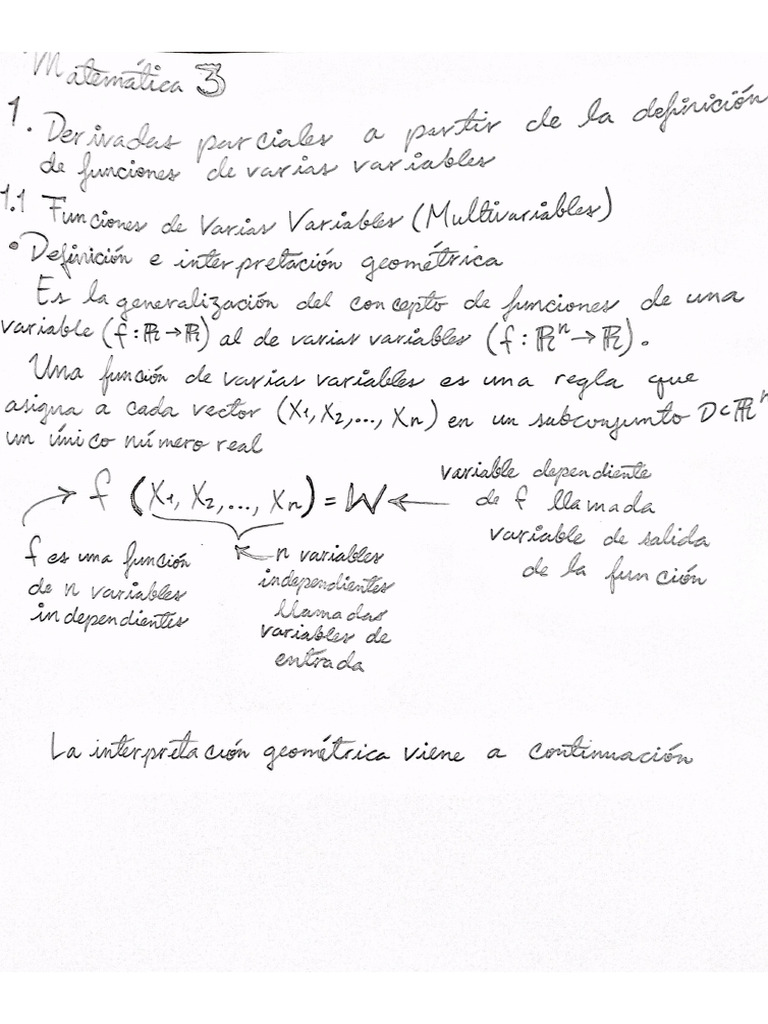 Matemática 3
1. Derivadas parciales a partir de la definición
de funciones de varias variables
1.1 Funciones de Varias Variables (Multivariables)
• Definición e interpretación geométrica
Es la generalización del concepto de funciones de una
variable (f : ℝ → ℝ) al de varias variables (f : ℝⁿ → ℝ).
Una función de varias variables es una regla que
asigna a cada vector (X₁, X₂, ..., Xn) en un subconjunto D⊂ℝⁿ
un único número real
→ f (X₁, X₂, ..., Xn) = W ←
variable dependiente
de f llamada
variable de salida
de la función
f es una función
de n variables
independientes
← n variables
independientes
llamadas
variables de
entrada
La interpretación geométrica viene a continuación